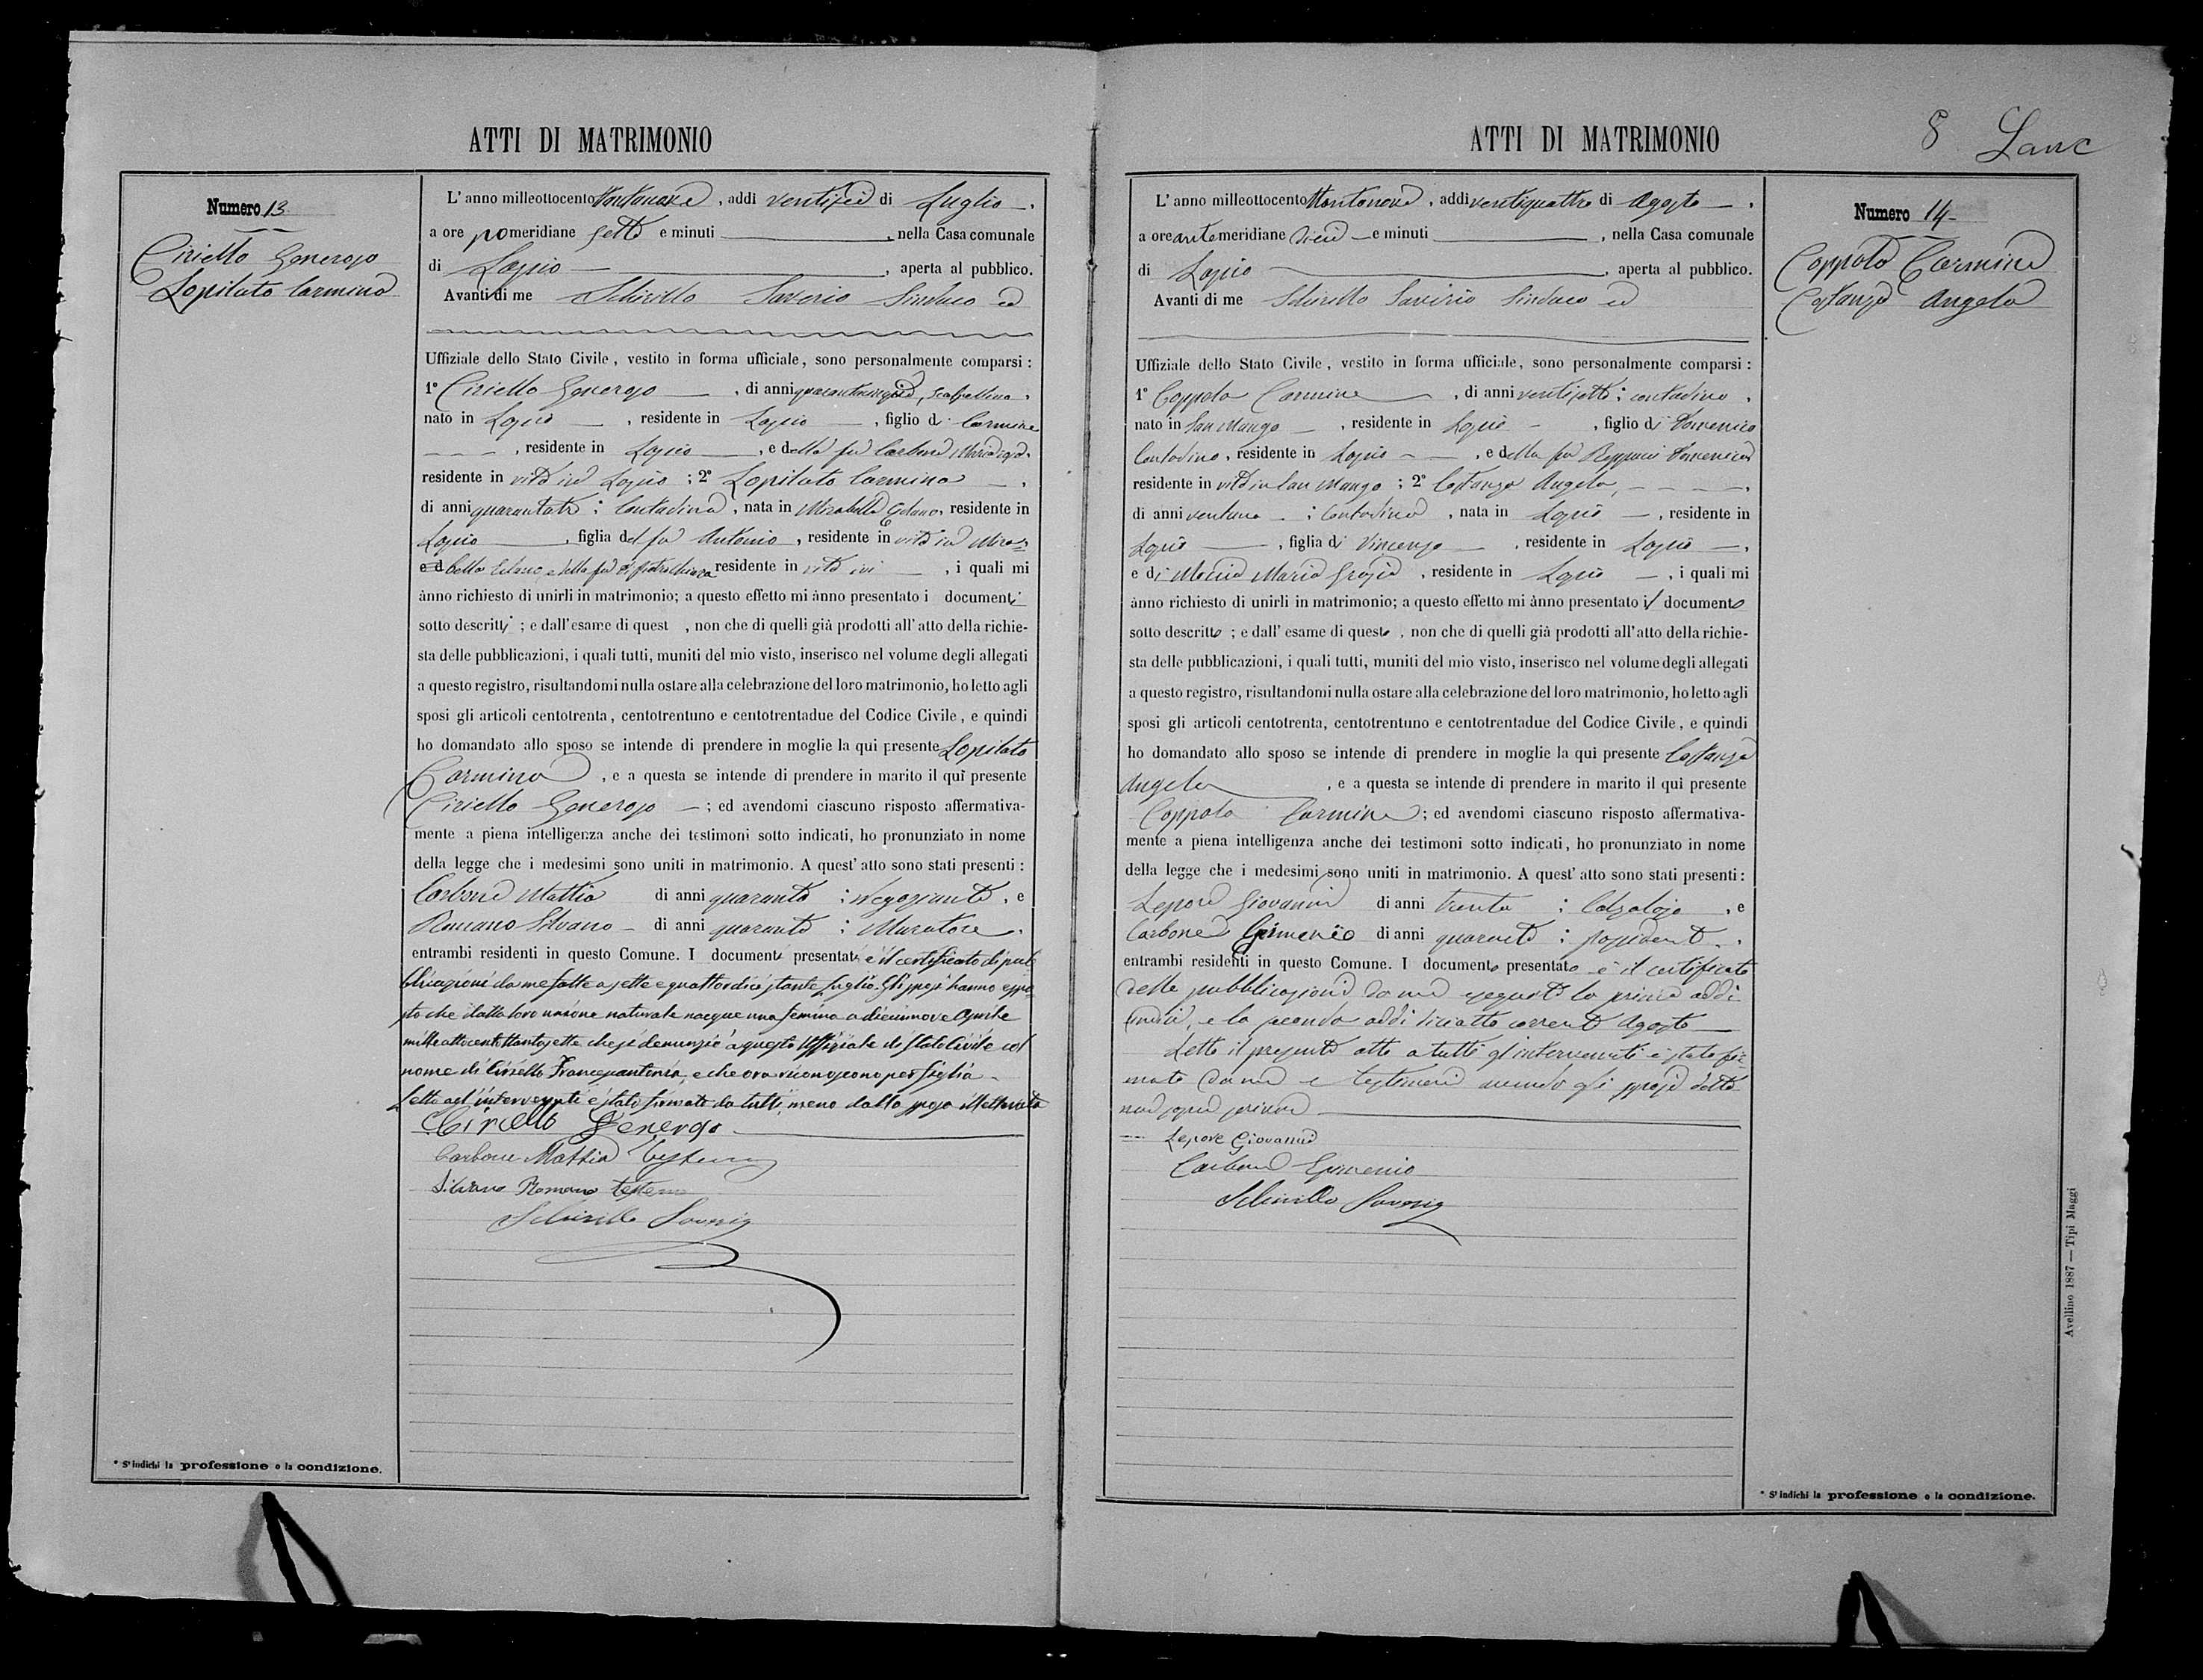 ATTI DI MATRIMONIO
Numero 13
Ciriello Generoso
Lopilato Carmina
L'anno milleottocento ottantanove, addi ventisei di Luglio,
a ore pomeridiane sette e minuti , nella Casa comunale
di Lapio , aperta al pubblico.
Avanti di me Schirillo Saverio Sindaco ed
Uffiziale dello Stato Civile, vestito in forma ufficiale, sono personalmente comparsi:
1° Ciriello Generoso , di anni quarantacinque, scalpellino,
nato in Lapio , residente in Lapio , figlio di Carmine
, residente in Lapio , e della fu Carbone
residente in vita in Lapio ; 2° Lopilato Carmina ,
di anni quarantatre ; Contadina , nata in Mirabella Eclano, residente in
Lapio , figlia del fu Antonio , residente in vita in Mira-
e d bella Eclano, e della fu di Pietro Chiara residente in vita ivi , i quali mi
ànno richiesto di unirli in matrimonio; a questo effetto mi ànno presentato i documenti
sotto descritti ; e dall'esame di quest , non che di quelli già prodotti all'atto della richie-
sta delle pubblicazioni, i quali tutti, muniti del mio visto, inserisco nel volume degli allegati
a questo registro, risultandomi nulla ostare alla celebrazione del loro matrimonio, ho letto agli
sposi gli articoli centotrenta, centotrentuno e centotrentadue del Codice Civile, e quindi
ho domandato allo sposo se intende di prendere in moglie la qui presente Lopilato
Carmina , e a questa se intende di prendere in marito il qui presente
Ciriello Generoso ; ed avendomi ciascuno risposto affermativa-
mente a piena intelligenza anche dei testimoni sotto indicati, ho pronunziato in nome
della legge che i medesimi sono uniti in matrimonio. A quest'atto sono stati presenti:
Carbone Mattia di anni quaranta ; Negoziante , e
Romano Silvano di anni quaranta ; Muratore ,
entrambi residenti in questo Comune. I documenti presentati è il certificato di pub
blicazioni da me fatte a sette e quattordici stante Luglio. Gli sposi hanno espo
sto che dalla loro unione naturale nacque una femina a diecinnove Aprile
milleottocentottantasette che si denunziò a questo Uffiziale di Stato Civile col
nome di Ciriello Francesantonia, e che ora riconoscono per figlia
Letto agl'intervenuti è stato firmato da tutti, meno dalla sposa illetterata
Ciriello Generoso
Carbone Mattia
Silvano Romano
Schirillo Saverio
* S'indichi la professione o la condizione.
ATTI DI MATRIMONIO
8
Numero 14
Coppola Carmine
Costanza Angela
L'anno milleottocento ottantanove, addi ventiquattro di Agosto ,
a ore antemeridiane dieci e minuti , nella Casa comunale
di Lapio , aperta al pubblico.
Avanti di me Schirillo Saverio Sindaco ed
Uffiziale dello Stato Civile, vestito in forma ufficiale, sono personalmente comparsi:
1° Coppola Carmine , di anni ventisette ; contadino ,
nato in San Mango , residente in Lapio , figlio di Domenico
Contadino, residente in Lapio , e della fu Domenica
residente in vita in San Mango ; 2° Costanza Angela,
di anni ventuno ; Contadina , nata in Lapio , residente in
Lapio , figlia di Vincenzo , residente in Lapio ,
e di Maria Grazia , residente in Lapio , i quali mi
ànno richiesto di unirli in matrimonio; a questo effetto mi ànno presentato il documento
sotto descritto ; e dall'esame di questo , non che di quelli già prodotti all'atto della richie-
sta delle pubblicazioni, i quali tutti, muniti del mio visto, inserisco nel volume degli allegati
a questo registro, risultandomi nulla ostare alla celebrazione del loro matrimonio, ho letto agli
sposi gli articoli centotrenta, centotrentuno e centotrentadue del Codice Civile, e quindi
ho domandato allo sposo se intende di prendere in moglie la qui presente Costanza
Angela , e a questa se intende di prendere in marito il qui presente
Coppola Carmine ; ed avendomi ciascuno risposto affermativa-
mente a piena intelligenza anche dei testimoni sotto indicati, ho pronunziato in nome
della legge che i medesimi sono uniti in matrimonio. A quest'atto sono stati presenti:
Lepore Giovanni di anni trenta ; Calzolajo , e
Carbone di anni quaranta ; possidente ,
entrambi residenti in questo Comune. I documento presentato è il certificato
delle pubblicazioni da me eseguite la prima addi
undici, e la seconda addi diciotto corrente Agosto
Letto il presente atto a tutti gl'intervenuti è stato fir
mato da me e testimoni avendo gli sposi detto
non saper scrivere
Lepore Giovanni
Carbone
Schirillo Saverio
* S'indichi la professione o la condizione.
Avellino 1887 — Tipi Maggi